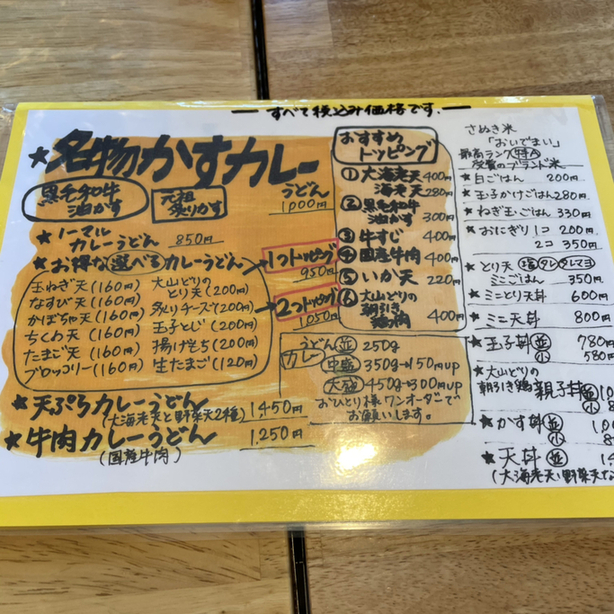 すべて税込み価格です.
★名物かすカレー
うどん
1000円
黒毛和牛
油かす
元祖
炙りかす
★ノーマル
カレーうどん 850円
★お得な選べるカレーうどん
1つトッピング
950円
2つトッピング
1050円
玉ねぎ天(160円)
なすび天(160円)
かぼちゃ天(160円)
ちくわ天(160円)
たまご天(160円)
ブロッコリー(160円)
大山どりの
とり天(200円)
炙りチーズ(200円)
玉子とじ(200円)
揚げもち(200円)
生たまご(120円)
★天ぷらカレーうどん 1450円
(大海老天と野菜天2種)
★牛肉カレーうどん 1,250円
(国産牛肉)
おすすめ
トッピング
①大海老天 400円
海老天 280円
②黒毛和牛
油かす 300円
③牛すじ 400円
④国産牛肉 400円
⑤いか天 220円
⑥大山どりの
朝引き
400円
カレー
うどん 並 250g
中盛 350g→150円up
大盛 450g→300円up
おひとり様ワンオーダーで
お願いします。
さぬき米
「おいでまい」
最高ランク特A
受賞のブランド米
★白ごはん 200円
★玉子かけごはん 280円
★ねぎ玉ごはん 330円
★おにぎり 1コ 200円
2コ 350円
★とり天 塩 タレ タレマヨ
ミニごはん 350円
★ミニとり天丼 600円
★ミニ天丼 800円
★玉子丼 並 780円
小 580円
★大山どりの
朝引き鶏 親子丼 並
★かす丼 並
小
★天丼 並
(大海老天、野菜天